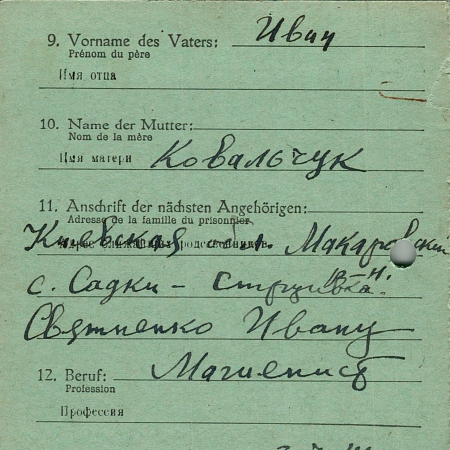 9. Vorname des Vaters: Иван
Prénom du père
Имя отца
10. Name der Mutter:
Nom de la mère
Имя матери Ковальчук
11. Anschrift der nächsten Angehörigen:
Adresse de la famille du prisonnier
Адрес ближайших родственников
Киевская обл. Макаровский
р-н.
с. Садки –
Ивану
12. Beruf: Машинист
Profession
Профессия